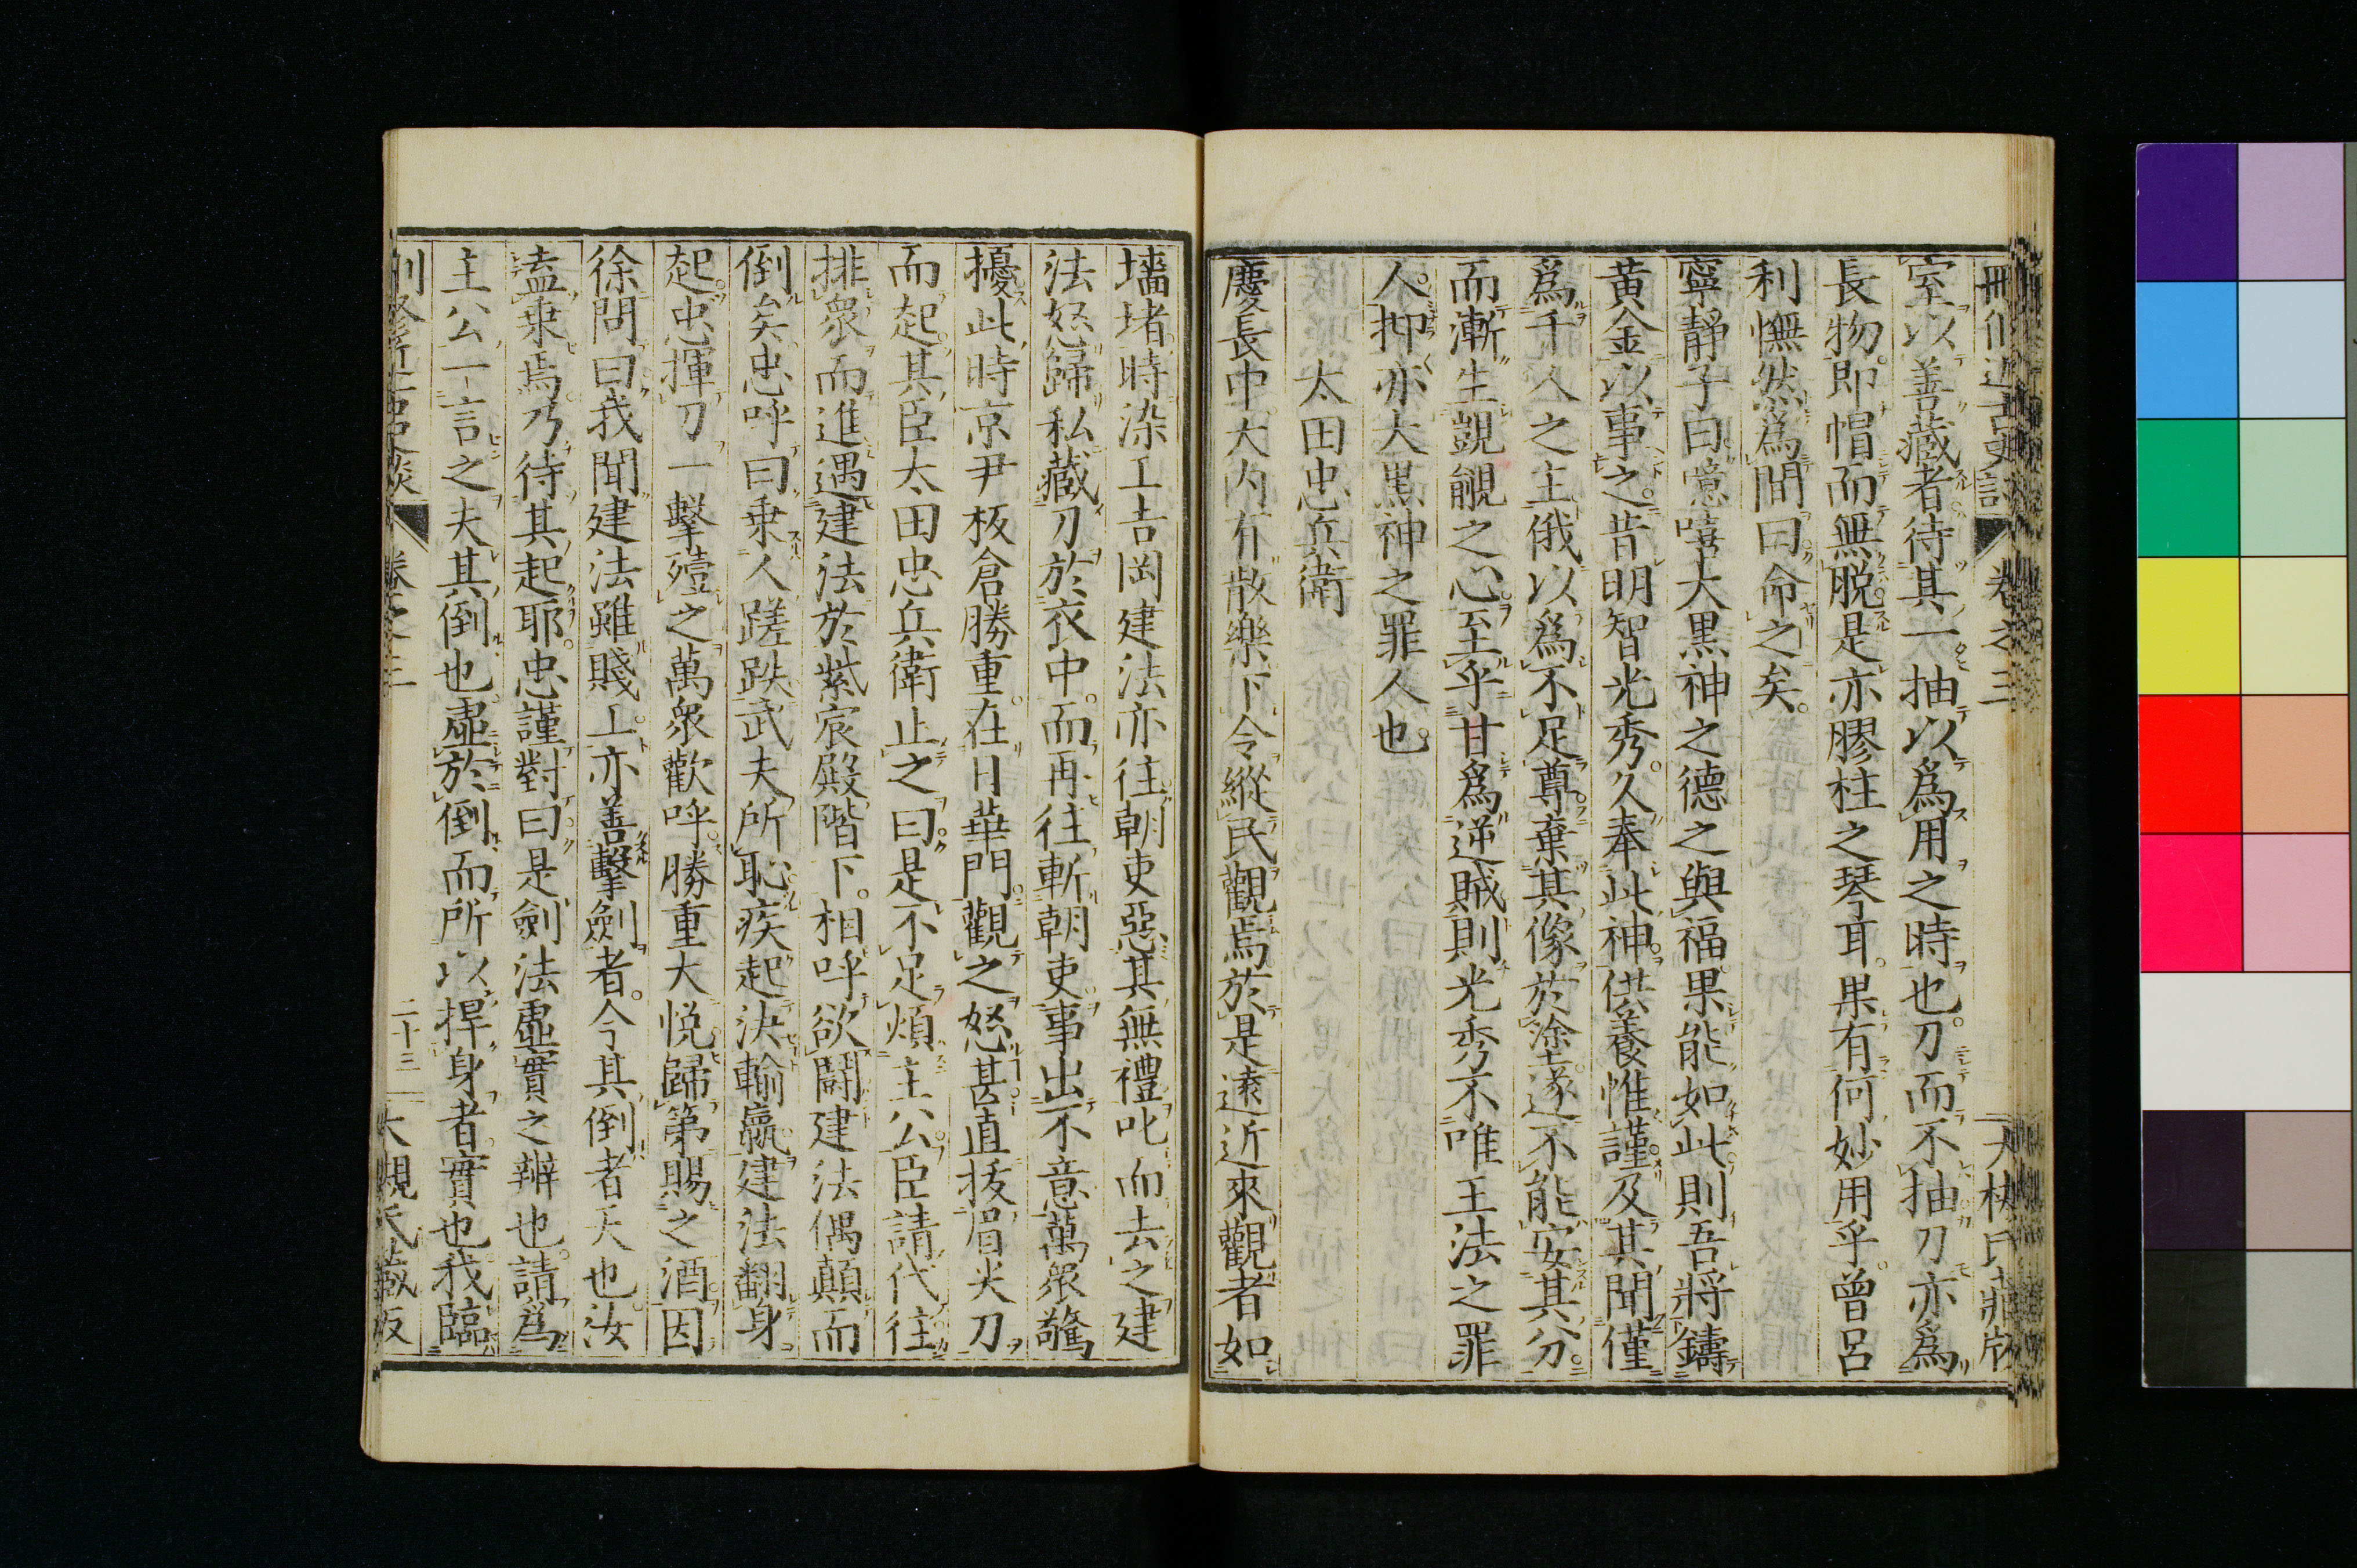 卷之三
室以善藏者待其一抽以爲用之時也。刀而不抽刀亦爲
長物。即帽而無脱。是亦膠柱之琴耳。果有何妙用乎。曾呂
利憮然爲間曰。命之矣。
寧靜子曰。噫嘻大黒神之德之與福。果能如此。則吾將鑄
黄金以事之。昔明智光秀。久奉此神。供養惟謹。及其聞僅
爲千人之主。俄以爲不足尊。棄其像於塗。遂不能安其分。
而漸生覬覦之心。至乎甘爲逆賊。則光秀不唯王法之罪
人。抑亦大黒神之罪人也。
太田忠兵衛
慶長中。大内有散樂。下令縱民觀焉。於是遠近來觀者如
墻堵。時染工吉岡建法亦往。朝吏惡其無禮。叱而去之。建
法怒歸。私藏刀於衣中。而再往斬朝吏。事出不意。萬衆驚
擾。此時京尹板倉勝重。在日華門。觀之怒甚。直拔眉尖刀
而起。其臣太田忠兵衛止之曰。是不足煩主公。臣請代往。
排衆而進。遇建法於紫宸殿階下。相呼欲鬪。建法偶顛而
倒矣。忠呼曰。乗人蹉跌。武夫所恥。疾起決輸贏。建法翻身
起。忠揮刀一擊殪之。萬衆歡呼。勝重大悦。歸第賜之酒。因
徐問曰。我聞建法雖賤工。亦善擊劍者。今其倒者天也。汝
盍乗焉。乃待其起耶。忠謹對曰。是劍法虚實之辨也。請爲
主公一言之。夫其倒也。虚於倒。而所以捍身者。實也。我臨
卷之三 二十三 大槻氏藏版